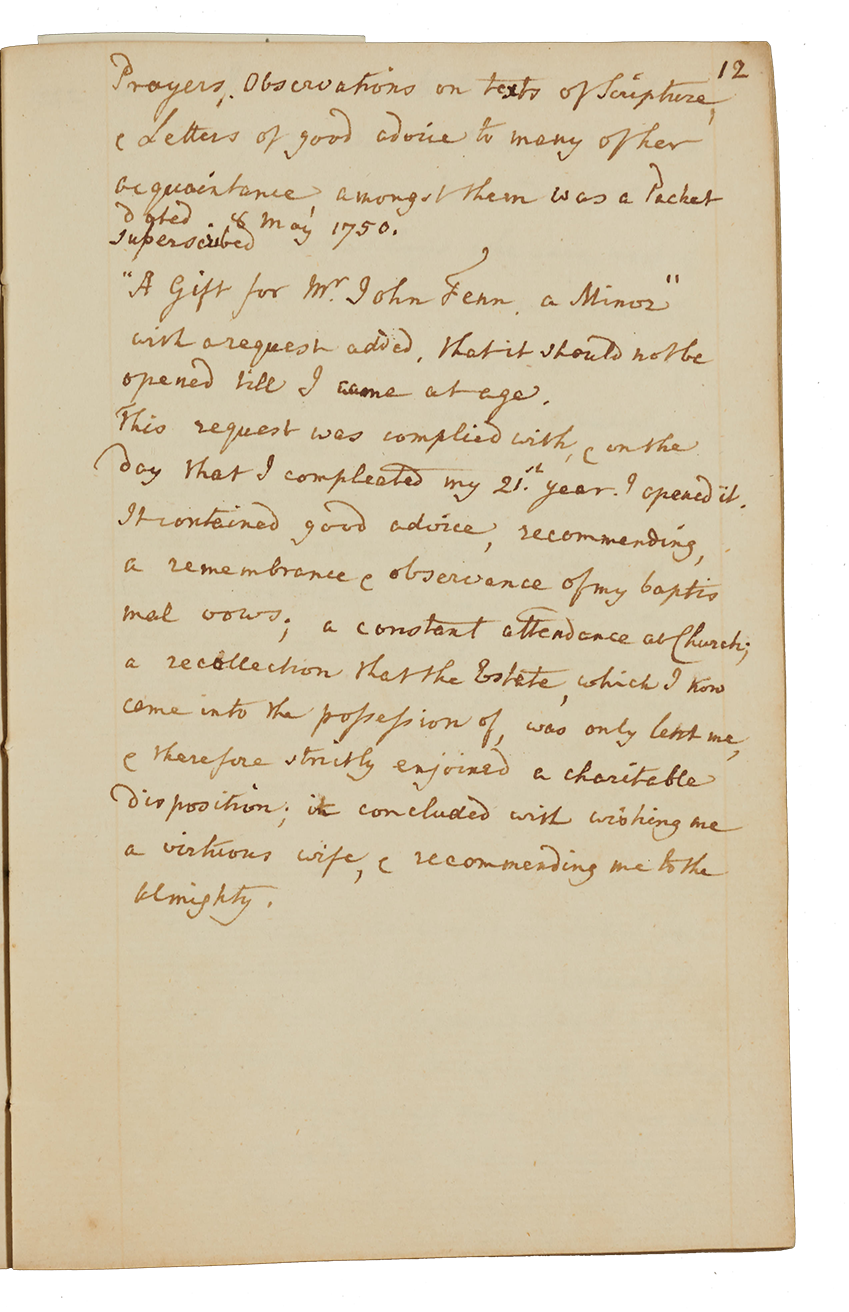 12
Prayers, Observations on texts of Scripture,
& Letters of good advice to many of her
acquaintance, amongst them was a Packet
dated . 8 May 1750.
superscribed
"A Gift for Mr. John Fenn, a Minor"
with a request added, that it should not be
opened till I came at age.
This request was complied with, & on the
day that I compleated my 21.st year. I opened it.
It contained good advice, recommending,
a remembrance & observance of my baptis
mal vows; a constant attendance at Church;
a recollection that the Estate, which I now
came into the possession of, was only lent me,
& therefore strictly enjoined a charitable
disposition; it concluded with wishing me
a virtuous wife, & recommending me to the
Almighty.